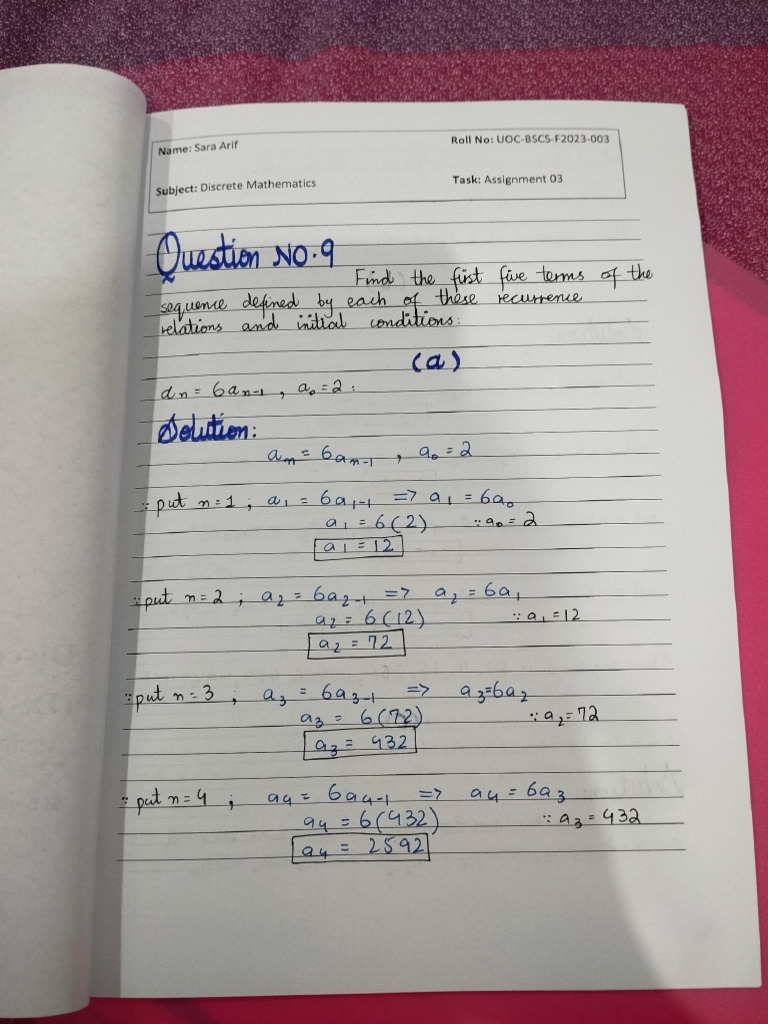 Name: Sara Arif
Roll No: UOC-BSCS-F2023-003
Subject: Discrete Mathematics
Task: Assignment 03
Question NO.9
Find the first five terms of the
sequence defined by each of these recurrence
relations and initial conditions:
(a)
dn = 6an-1 , a₀ = 2 :
Solution:
an = 6an-1 , a₀ = 2
∵ put n=1 ; a1 = 6a1-1 => a1 = 6a₀
a1 = 6(2) ∵ a₀ = 2
a1 = 12
∵ put n=2 ; a2 = 6a2-1 => a2 = 6a1
a2 = 6(12) ∵ a1 = 12
a2 = 72
∵ put n=3 ; a3 = 6a3-1 => a3=6a2
a3 = 6(72) ∵ a2=72
a3 = 432
∵ put n=4 ; a4 = 6a4-1 => a4 = 6a3
a4 = 6(432) ∵ a3 = 432
a4 = 2592